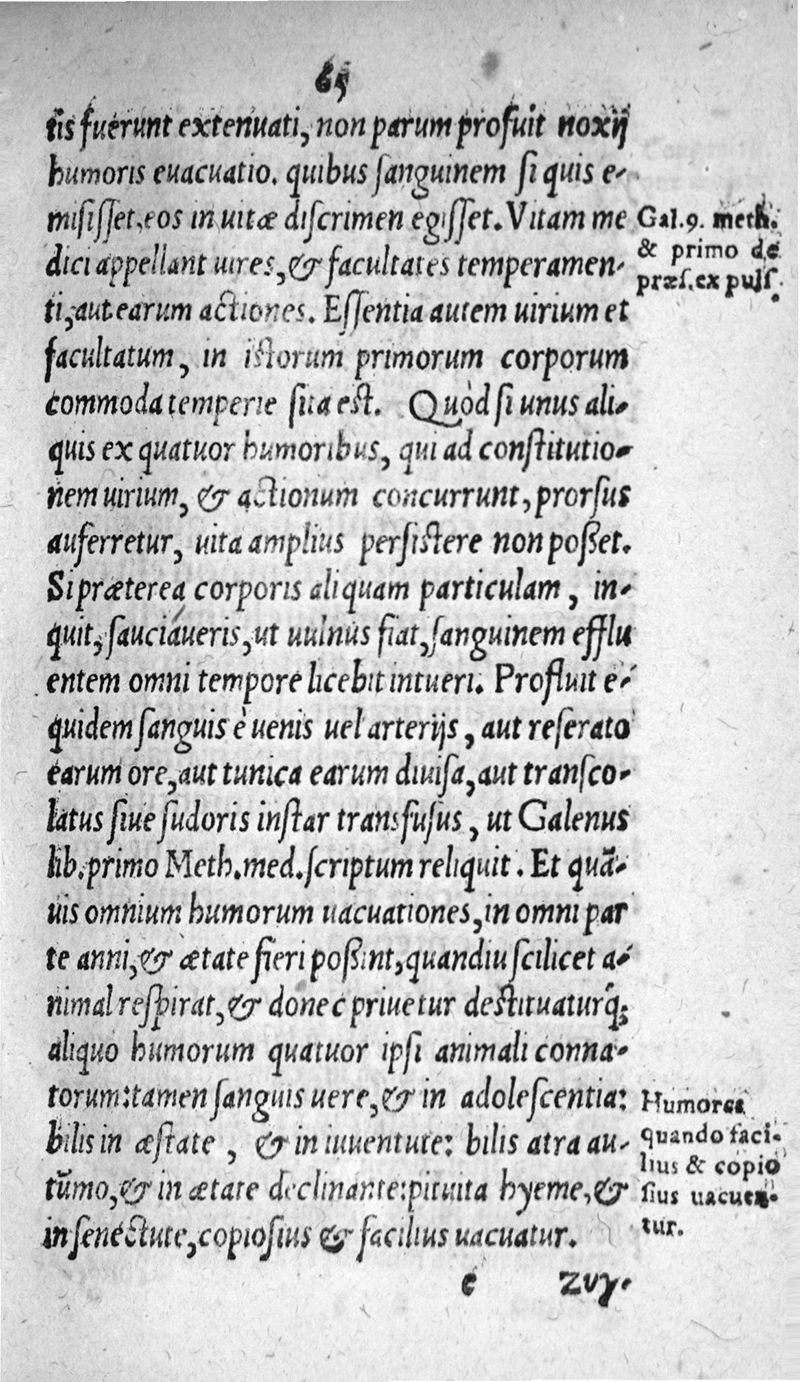 65
tis fuerunt extenuati, non parum profuit noxij
humoris euacuatio. quibus sanguinem si quis e-
misisset, eos in uitæ discrimen egisset. Vitam me
dici appellant uires, & facultates temperamen-
ti, aut earum actiones. Essentia autem uirium et
facultatum, in istorum primorum corporum
commoda temperie sita est. Quòd si unus ali-
quis ex quatuor humoribus, qui ad constitutio-
nem uirium, & actionum concurrunt, prorsus
auferretur, uita amplius persistere non poßet.
Si præterea corporis aliquam particulam, in-
quit, sauciaueris, ut uulnus fiat, sanguinem efflu
entem omni tempore licebit intueri. Profluit e-
quidem sanguis è uenis uel arterijs, aut reserato
earum ore, aut tunica earum diuisa, aut transco-
latus siue sudoris instar transfusus, ut Galenus
lib. primo Meth. med. scriptum reliquit. Et quā-
uis omnium humorum uacuationes, in omni par
te anni, & ætate fieri poßint, quandiu scilicet a-
nimal respirat, & donec priuetur destituaturq́;
aliquo humorum quatuor ipsi animali conna-
torum: tamen sanguis uere, & in adolescentia:
bilis in æstate, & in iuuentute: bilis atra au-
tūmo, & in ætate declinante: pituita hyeme, &
in senectute, copiosius & facilius uacuatur.
e Zvy-
Gal. 9. meth.
& primo de
præs. ex puls.
Humores
quando faci-
lius & copio
sius uacuen-
tur.